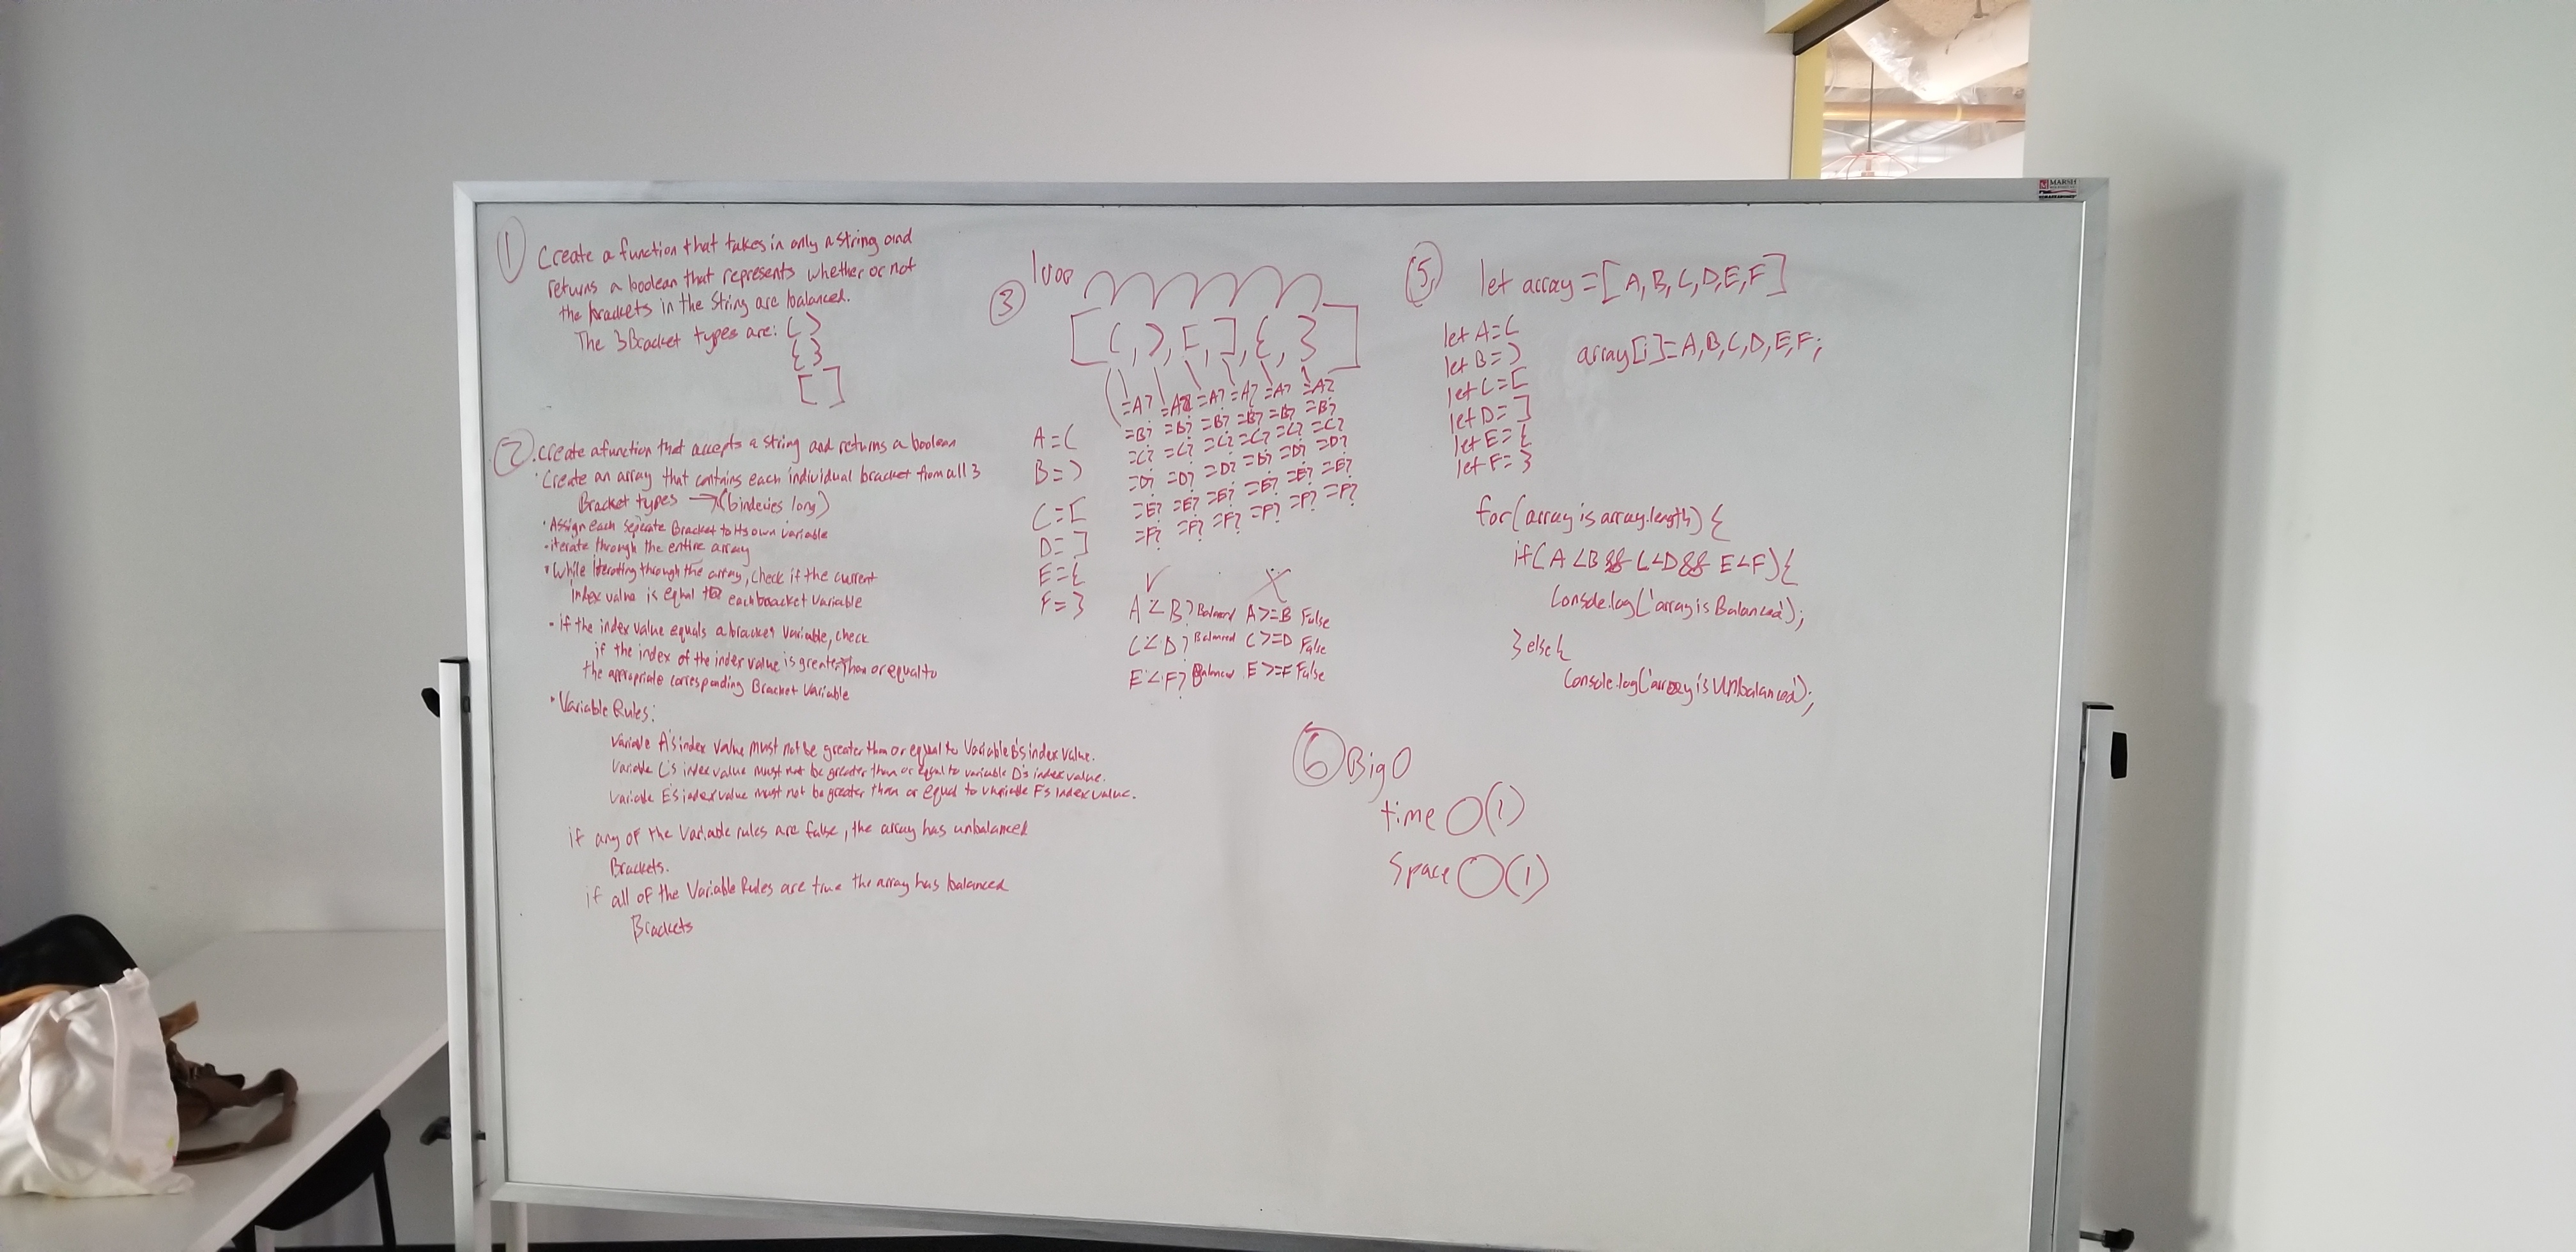 ①
Create a function that takes in only a string and
returns a boolean that represents whether or not
the brackets in the string are balanced.
The 3 Bracket types are: ( )
{ }
[ ]
②. Create a function that accepts a string and returns a boolean
· Create an array that contains each individual bracket from all 3
Bracket types → (6 indexies long)
· Assign each seperate Bracket to its own variable
· iterate through the entire array
· While iterating through the array, check if the current
index value is equal to each bracket variable
· if the index value equals a bracket variable, check
if the index of the index value is greater than or equal to
the appropriate corresponding Bracket Variable
· Variable Rules:
Variable A's index value must not be greater than or equal to Variable B's index value.
Variable C's index value must not be greater than or equal to variable D's index value.
Variable E's index value must not be greater than or equal to variable F's index value.
if any of the Variable rules are false, the array has unbalanced
Brackets.
if all of the Variable Rules are true the array has balanced
Brackets
③
loop
[ (, ), [, ], {, } ]
=A? =A? =A? =A? =A? =A?
=B? =B? =B? =B? =B? =B?
=C? =C? =C? =C? =C? =C?
=D? =D? =D? =D? =D? =D?
=E? =E? =E? =E? =E? =E?
=F? =F? =F? =F? =F? =F?
A = (
B = )
C = [
D = ]
E = {
F = }
✓ X
A < B? Balanced A >= B False
C < D? Balanced C >= D False
E < F? Balanced E >= F False
⑤ let array = [A, B, C, D, E, F]
let A = (
let B = )
let C = [
let D = ]
let E = {
let F = }
array[i] = A, B, C, D, E, F;
for(array is array.length) {
if(A < B && C < D && E < F) {
Console.log('array is Balanced');
} else {
Console.log('array is Unbalanced');
⑥ Big O
time O(1)
Space O(1)
MARSH